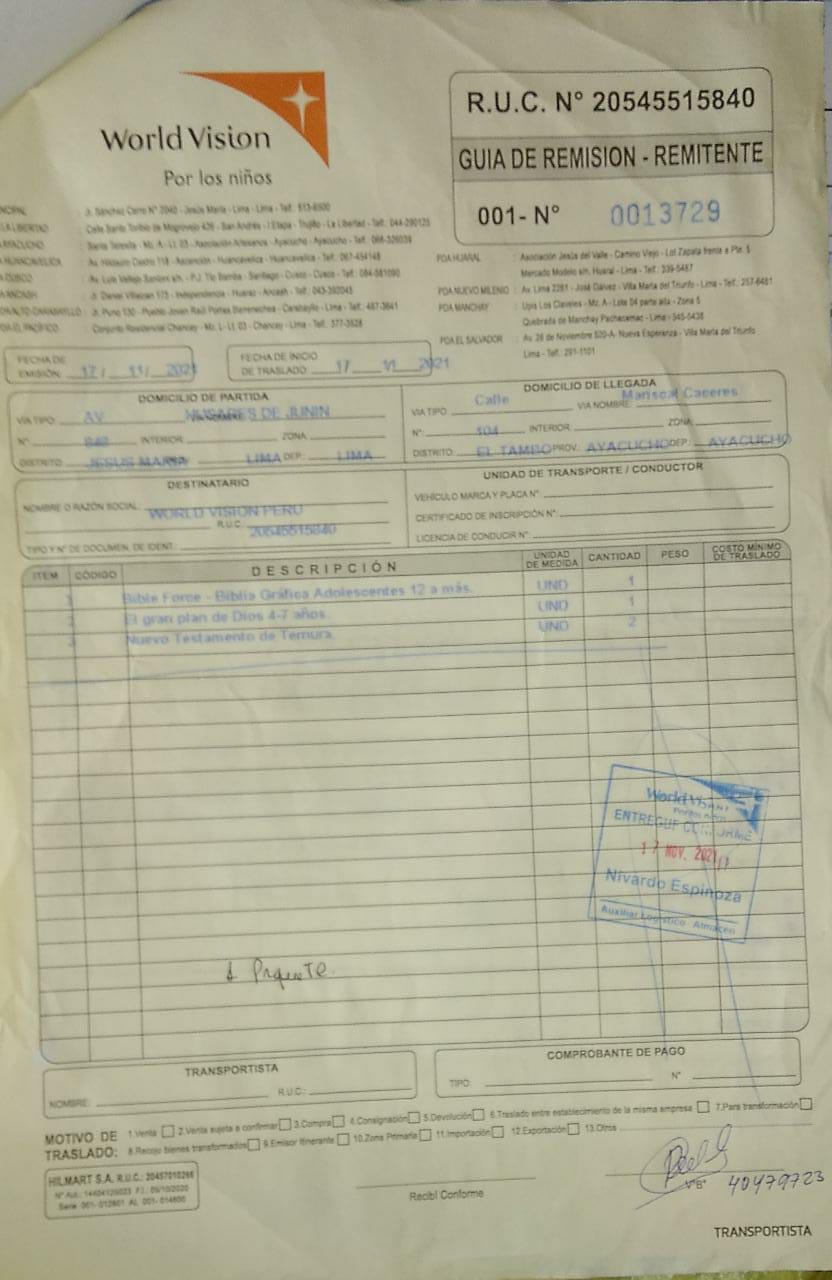 World Vision
Por los niños
R.U.C. N° 20545515840
GUIA DE REMISION - REMITENTE
001- N° 0013729
Jr. Sánchez Cerro N° 2040 - Jesús María - Lima - Lima - Telf.: 613-6500
Calle Santo Toribio de Mogrovejo 426 - San Andrés - I Etapa - Trujillo - La Libertad - Telf.: 044-290125
Santa Teresita - Mz. A - Lt. 03 - Asociación Artesanos - Ayacucho - Ayacucho - Telf.:
Ascención - Huancavelica - Huancavelica - Telf.: 067-454148
Santiago - Cusco - Cusco - Telf.: 084-381090
Independencia - Huaraz - Ancash - Telf.: 043-392045
Jr. Puno 130 - Pueblo Joven Raúl Porras Barrenechea - Carabayllo - Lima - Telf.:
Conjunto Residencial Chancay - Mz. L - Lt. 03 - Chancay - Lima - Telf.: 377-3528
PDA HUARAL : Asociación Jesús del Valle - Camino Viejo - Lot Zapata frente a Pte. 5
Mercado Modelo s/n. Huaral - Lima - Telf.: 339-5487
PDA NUEVO MILENIO : Av. Lima 2281 - José Gálvez - Villa María del Triunfo - Lima - Telf.: 257-6481
PDA MANCHAY : Upis Los Claveles - Mz. A - Lote 04 parte alta - Zona 5
Quebrada de Manchay Pachacamac - Lima - 345-5438
PDA EL SALVADOR : Av. 26 de Noviembre 520-A- Nueva Esperanza - Villa María del Triunfo
Lima - Telf.: 291-1101
FECHA DE EMISIÓN: 17 / 11 / 2021
FECHA DE INICIO DE TRASLADO 17 11 2021
DOMICILIO DE PARTIDA
VIA TIPO: AV. HUSARES DE JUNIN
N°: INTERIOR: ZONA:
DISTRITO: JESUS MARIA LIMA DEP.: LIMA
DOMICILIO DE LLEGADA
VIA TIPO: Calle VIA NOMBRE: Mariscal Caceres
N°: 104 INTERIOR: ZONA:
DISTRITO: EL TAMBO PROV.: AYACUCHO DEP.: AYACUCHO
DESTINATARIO
NOMBRE O RAZÓN SOCIAL: WORLD VISION PERU
R.U.C.: 20545515840
TIPO Y N° DE DOCUMEN. DE IDENT.:
UNIDAD DE TRANSPORTE / CONDUCTOR
VEHÍCULO MARCA Y PLACA N°:
CERTIFICADO DE INSCRIPCIÓN N°:
LICENCIA DE CONDUCIR N°:
ITEM CÓDIGO DESCRIPCIÓN UNIDAD DE MEDIDA CANTIDAD PESO COSTO MÍNIMO DE TRASLADO
1 Bible Force - Biblia Gráfica Adolescentes 12 a más. UND 1
2 El gran plan de Dios 4-7 años. UND 1
3 Nuevo Testamento de Ternura. UND 2
World Vision
Por los niños
ENTREGUE CONFORME
17 NOV. 2021
Nivardo Espinoza
Auxiliar Logístico Almacen
1 Paquete.
TRANSPORTISTA
NOMBRE: R.U.C.:
COMPROBANTE DE PAGO
TIPO: N°
MOTIVO DE TRASLADO: 1.Venta 2.Venta sujeta a confirmar 3.Compra 4.Consignación 5.Devolución 6.Traslado entre establecimiento de la misma empresa 7.Para transformación
8.Recojo bienes transformados 9.Emisor Itinerante 10.Zona Primaria 11.Importación 12.Exportación 13.Otros
HILMART S.A. R.U.C.: 20457010266
N° Aut.: F.I.: 09/10/2020
Serie 001- 012801 AL 001- 014800
Recibí Conforme
V°B° 40479723
TRANSPORTISTA